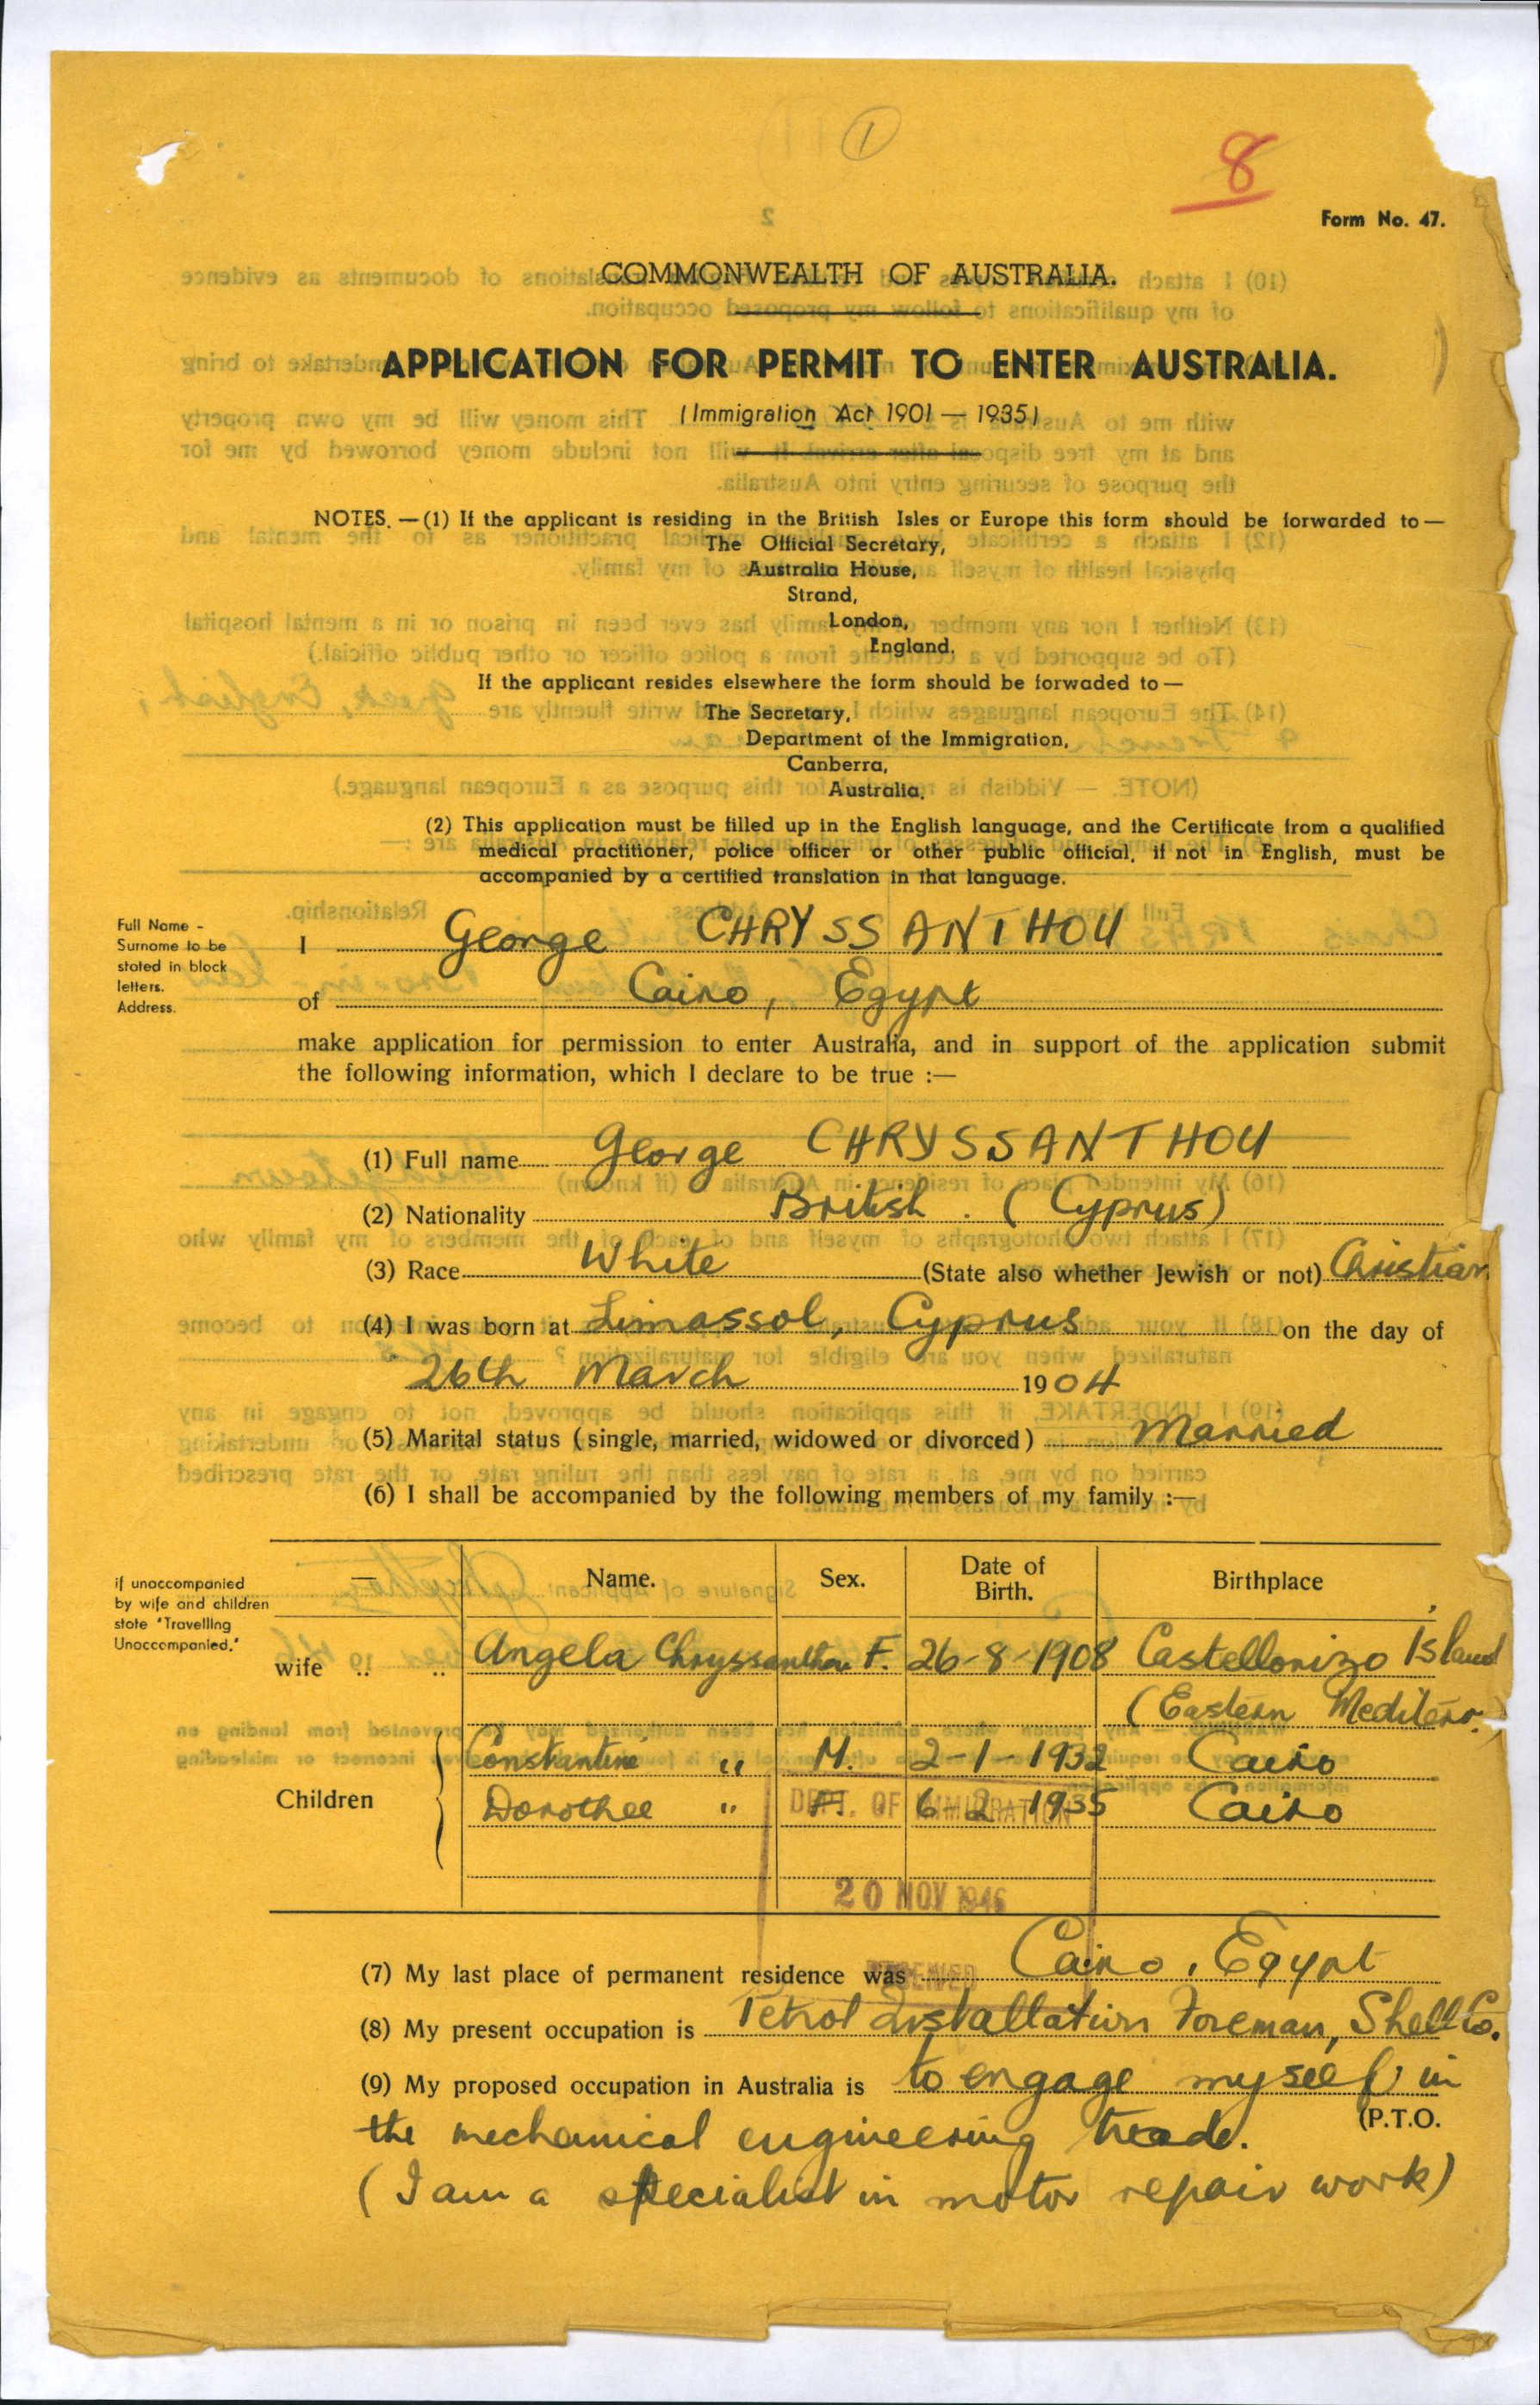 1
8
Form No. 47.
COMMONWEALTH OF AUSTRALIA.
APPLICATION FOR PERMIT TO ENTER AUSTRALIA.
(Immigration Act 1901 — 1935)
NOTES. — (1) If the applicant is residing in the British Isles or Europe this form should be forwarded to —
The Official Secretary,
Australia House,
Strand,
London,
England.
If the applicant resides elsewhere the form should be forwaded to —
The Secretary,
Department of the Immigration,
Canberra,
Australia.
(2) This application must be filled up in the English language, and the Certificate from a qualified
medical practitioner, police officer or other public official, if not in English, must be
accompanied by a certified translation in that language.
Full Name -
Surname to be
stated in block
letters.
Address.
I George CHRYSSANTHOU
of Cairo, Egypt
make application for permission to enter Australia, and in support of the application submit
the following information, which I declare to be true :—
(1) Full name George CHRYSSANTHOU
(2) Nationality British. (Cyprus)
(3) Race White (State also whether Jewish or not) Christian
(4) I was born at Limassol, Cyprus on the day of
26th March 1904
(5) Marital status (single, married, widowed or divorced) Married
(6) I shall be accompanied by the following members of my family :—
if unaccompanied
by wife and children
state "Travelling
Unaccompanied."
— Name. Sex. Date of Birth. Birthplace
wife .. .. Angela Chryssanthou F. 26-8-1908 Castellorizo Island
(Eastern Mediterr.)
Children
Constantine " M. 2-1-1932 Cairo
Dorothee " F. 6-2-1935 Cairo
DEPT. OF IMMIGRATION
20 NOV 1946
RECEIVED
(7) My last place of permanent residence was Cairo, Egypt
(8) My present occupation is Petrol Installation Foreman, Shell Co.
(9) My proposed occupation in Australia is to engage myself in
(P.T.O.
the mechanical engineering trade.
(I am a specialist in motor repair work)